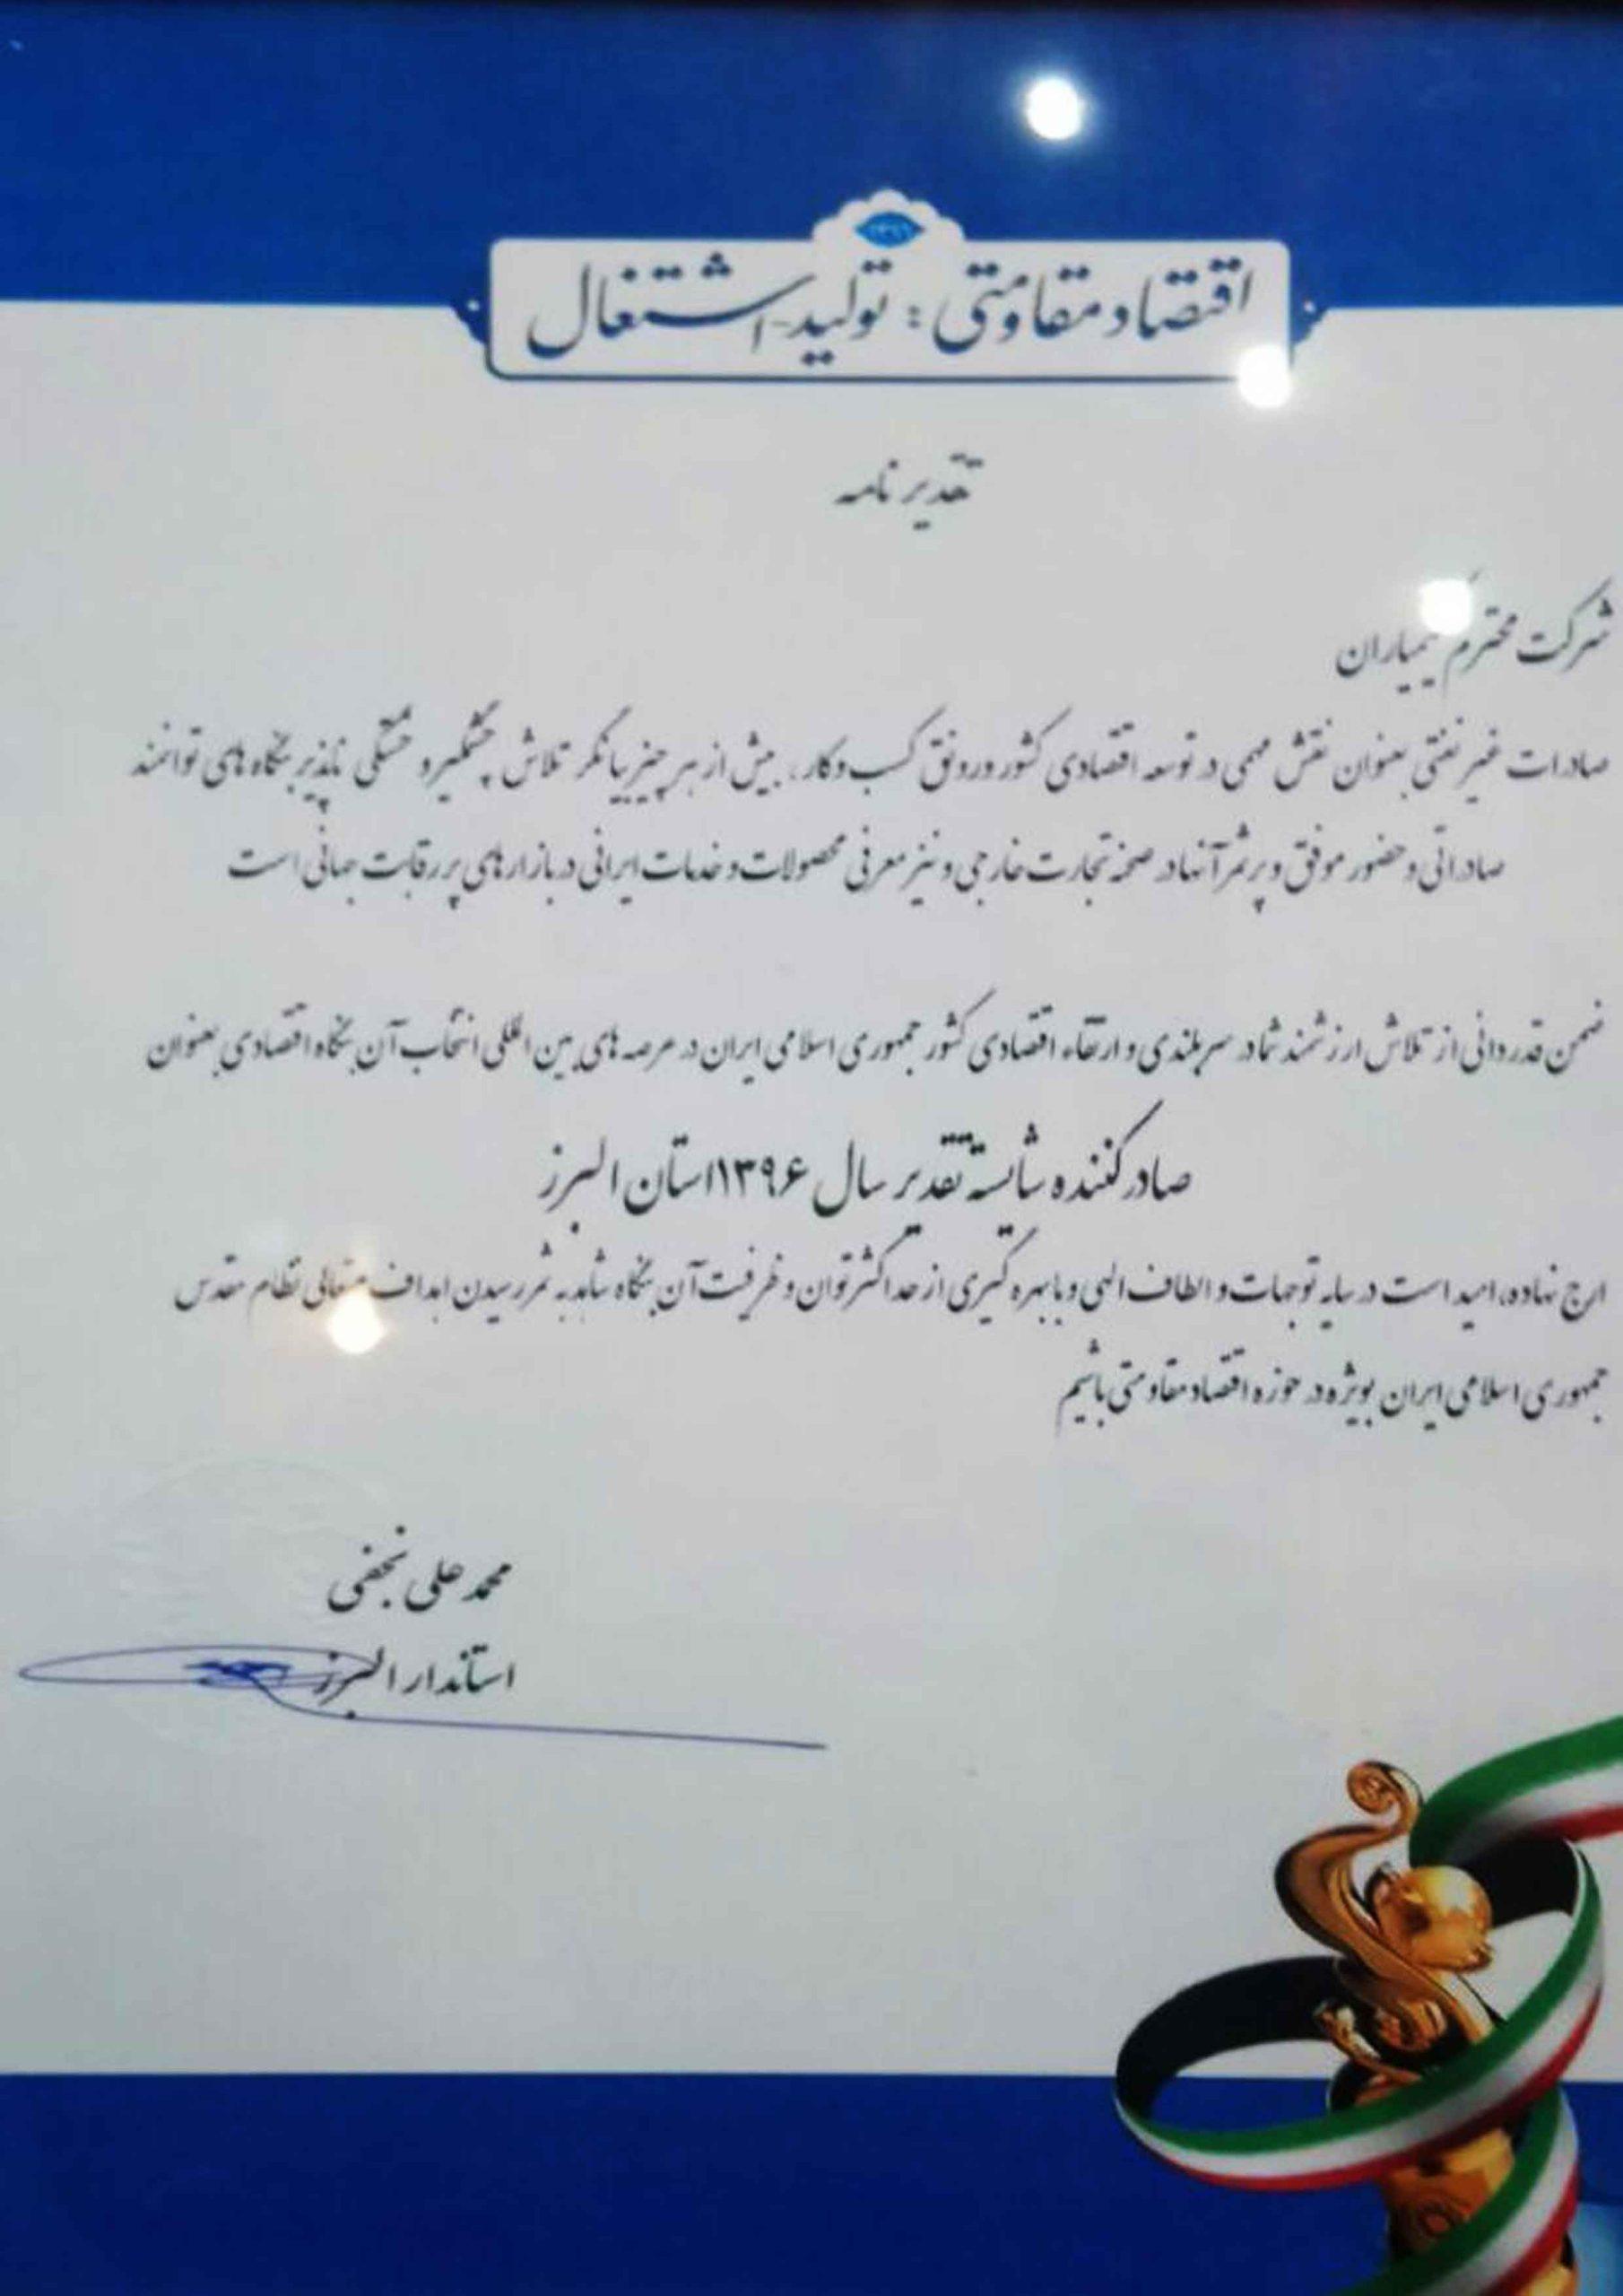 اقتصاد مقاومتی : تولید - اشتغال
تقدیر نامه
شرکت محترم
صادرات غیر نفتی بعنوان نقش مهمی در توسعه اقتصادی کشور و رونق کسب و کار، بیش از هر چیز بیانگر تلاش چشمگیر و خستگی ناپذیر بنگاه های توانمند
صادراتی و حضور موفق و پر ثمر آنها در صحنه تجارت خارجی و نیز معرفی محصولات و خدمات ایرانی در بازارهای پر رقابت جهانی است
ضمن قدردانی از تلاش ارزشمند شما در سربلندی و ارتقاء اقتصادی کشور جمهوری اسلامی ایران در عرصه های بین المللی انتخاب آن بنگاه اقتصادی بعنوان
صادر کننده شایسته تقدیر سال ۱۳۹۶ استان البرز
ارج نهاده، امید است در سایه توجهات و الطاف الهی و با بهره گیری از حداکثر توان و ظرفیت آن بنگاه شاهد به ثمر رسیدن اهداف متعالی نظام مقدس
جمهوری اسلامی ایران بویژه در حوزه اقتصاد مقاومتی باشیم
محمد علی نجفی
استاندار البرز